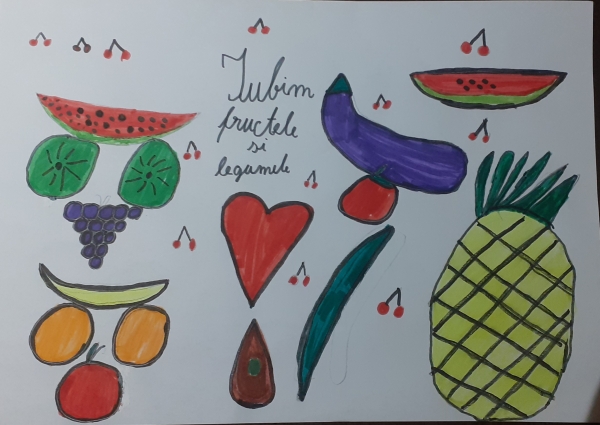 Iubim
fructele
si
legumele